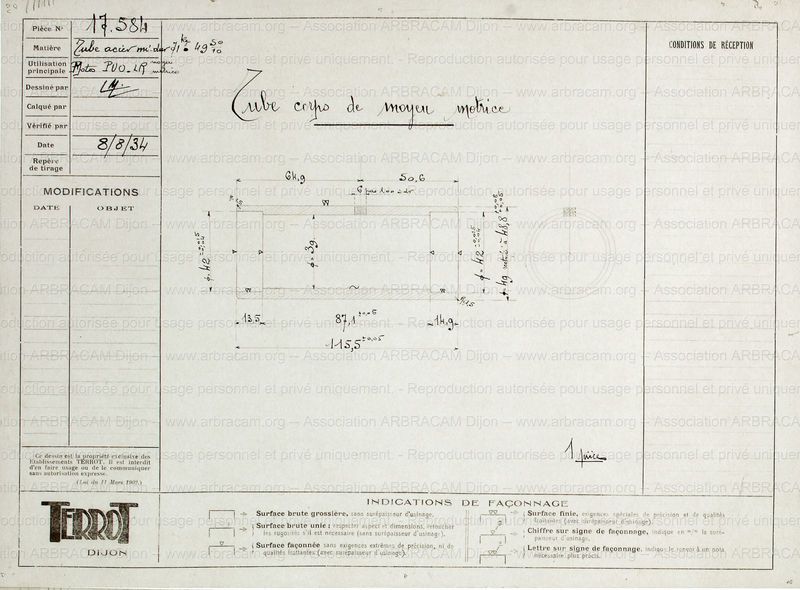 Pièce Nº 17.584
Matière Tube acier mi-dur 71 kg 49 50/10
Utilisation principale Moto PUO-LR
Dessiné par
Calqué par
Vérifié par
Date 8/8/34
Repère de tirage
MODIFICATIONS
DATE OBJET
CONDITIONS DE RÉCEPTION
Tube corps de moyeu motrice
64,9 50,6
ϕ=42
ϕ=39
ϕ=42
ϕ=49
13,5 87,1 ±0,05 14,9
115,5 ±0,05
1 pièce
Ce dessin est la propriété exclusive des
Etablissements TERROT. Il est interdit
d'en faire usage ou de le communiquer
sans autorisation expresse.
(Loi du 11 Mars 1902.)
TERROT
DIJON
INDICATIONS DE FAÇONNAGE
Surface brute grossière, sans surépaisseur d'usinage.
Surface brute unie : respecter aspect et dimensions, retoucher
les rugosités s'il est nécessaire (sans surépaisseur d'usinage).
Surface façonnée sans exigences extrêmes de précision, ni de
qualités frottantes (avec surépaisseur d'usinage).
Surface finie, exigences spéciales de précision et de qualités
frottantes (avec surépaisseur d'usinage).
Chiffre sur signe de façonnage, indique en m/m la surépaisseur d'usinage.
Lettre sur signe de façonnage, indique le renvoi à un nota
nécessaire plus précis.
Reproduction autorisée pour usage personnel et privé uniquement. - www.arbracam.org – Association ARBRACAM Dijon